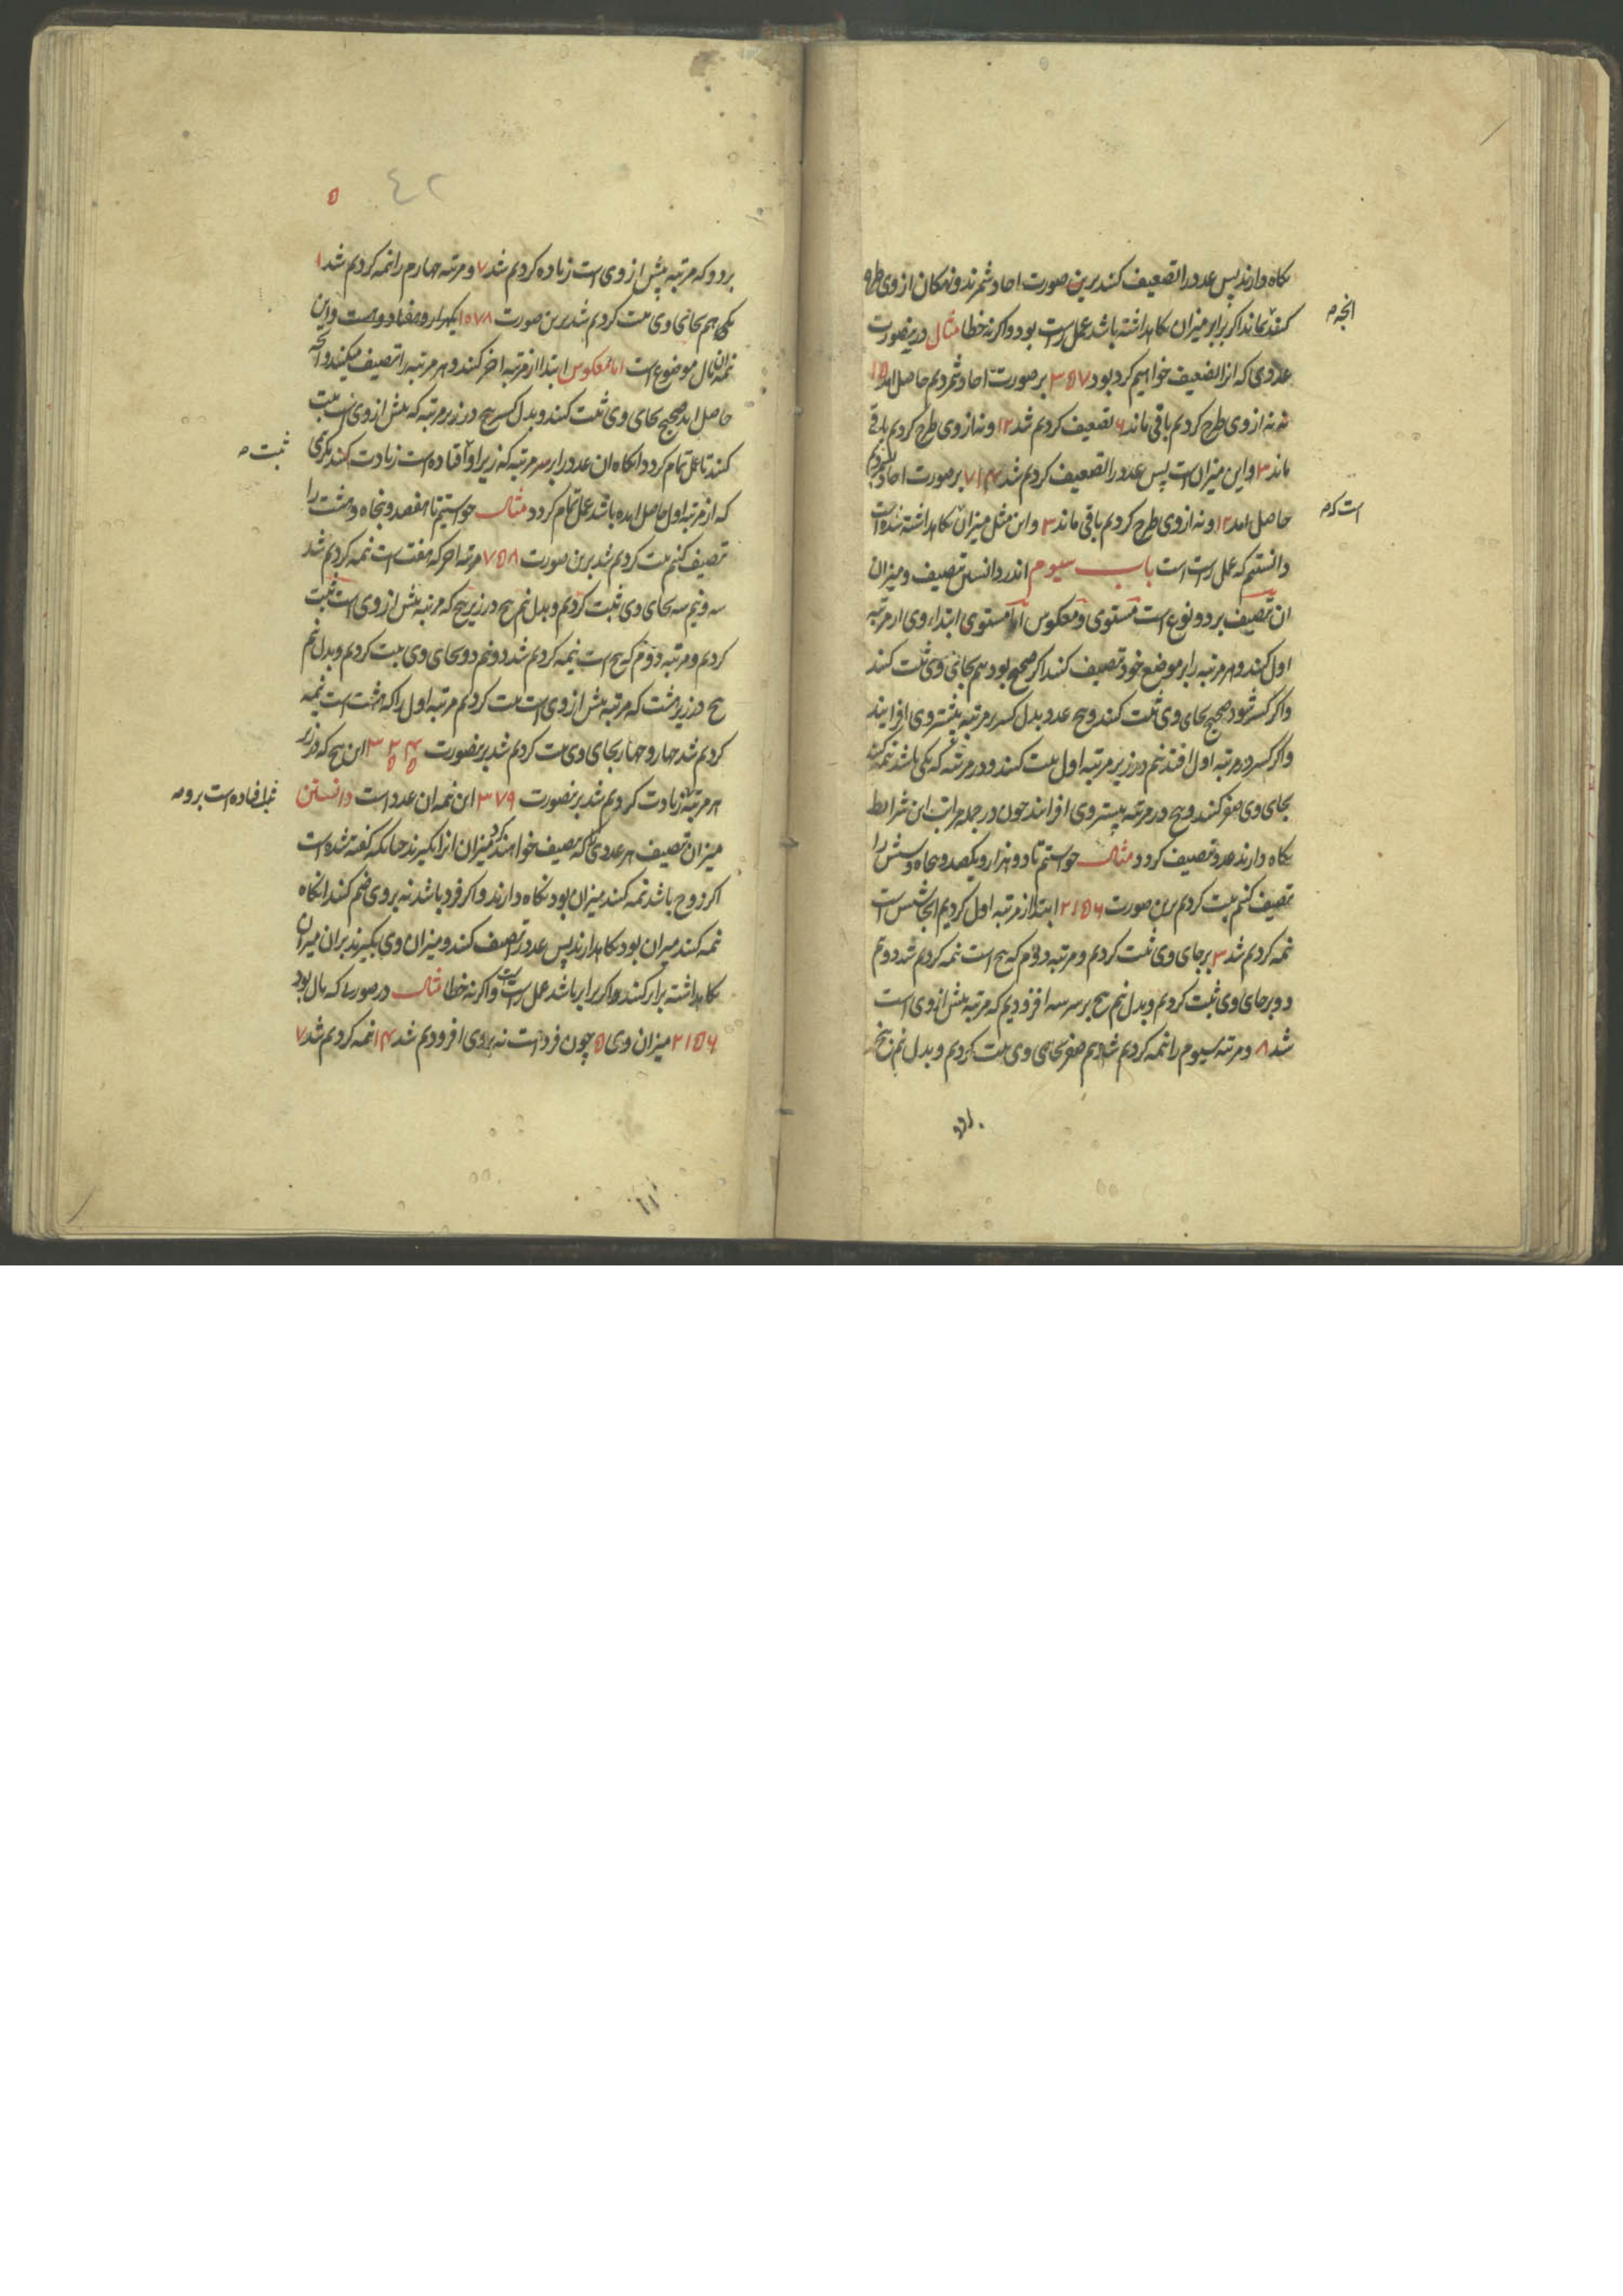 نکاه دارند پس عدد را تضعیف کنند برین صورت احاد شمرند و نه کان از وی طرح
کنند بماند اکر برابر میزان نکاهداشته باشد عمل راست بود و اکرنه خطا مثال درینصورت
عددی که انرا تضعیف خواهیم کرد بود ۳۵۷ بر صورت احاد شمردیم حاصل امد ۱۵
نه نه از وی طرح کردیم باقی ماند ۶ تضعیف کردیم شد ۱۲ و نه از وی طرح کردیم باقی
ماند ۳ و این میزان است پس عدد را تضعیف کردیم شد ۷۱۴ بر صورت احاد شمردیم
حاصل امد ۱۲ و نه از وی طرح کردیم باقی ماند ۳ و این مثل میزان نکاهداشته شده است
دانستیم که عمل راست است باب سیوم اندر دانستن تنصیف و میزان
ان تنصیف بر دو نوع است مستوی و معکوس اما مستوی ابتداء وی از مرتبه
اول کنند و هر مرتبه را بر موضع خود تنصیف کنند اکر صحیح بود هم بجای وی ثبت کنند
و اکر کسر شود صحیح بجای وی ثبت کنند و پنج عدد بدل کسر بر مرتبه پیشتر وی افزایند
و اکر کسر در مرتبه اول افتد نیم در زیر مرتبه اول ثبت کنند و در مرتبه که یکی باشد نیمه کنند
بجای وی صفر کنند و پنج در مرتبه پیشتر وی افزایند چون در جمله مراتب این شرایط
نکاه دارند عدد تنصیف کردد مثال خواستیم تا دو هزار و یکصد و پنجاه و شش را
تنصیف کنیم ثبت کردیم برین صورت ۲۱۵۶ ابتدا از مرتبه اول کردیم انجا شش است
نیمه کردیم شد ۳ بر جای وی ثبت کردیم و مرتبه دوم که پنج است نیمه کردیم شد دو نیم
دو بر جای وی ثبت کردیم و بدل نیم پنج بر سر سه افزودیم که مرتبه پیش از وی است
شد ۸ و مرتبه سیوم را نیمه کردیم شد نیم صفر بجای وی ثبت کردیم و بدل نیم پنج
انچه م
است که م
۵
٤٢
بر دو که مرتبه پیش از وی است زیاده کردیم شد ۷ و مرتبه چهارم را نیمه کردیم شد ۱
یکی هم بجای وی ثبت کردیم شد برین صورت ۱۰۷۸ یکهزار و هفتاد و هشت و این
نیمه ان مال موضوع است اما معکوس ابتدا از مرتبه اخر کنند و هر مرتبه را تنصیف میکنند و انچه
حاصل اید صحیح بجای وی ثبت کنند و بدل کسر پنج در زیر مرتبه که پیش از وی است ثبت
کنند تا عمل تمام کردد انکاه ان عدد را بر سر مرتبه که زیر او افتاده است زیادت کنند
که از مرتبه اول حاصل امده باشد عمل تمام کردد مثال خواستیم تا هفصد و پنجاه و هشت را
تنصیف کنیم ثبت کردیم شد برین صورت ۷۵۸ مرتبه اخر که هفت است نیمه کردیم شد
سه و نیم سه بجای وی ثبت کردیم و بدل نیم پنج در زیر پنج که مرتبه پیش از وی است ثبت
کردیم و مرتبه دوم که پنج است نیمه کردیم شد دو نیم دو بجای وی ثبت کردیم و بدل نیم
پنج در زیر هشت که مرتبه پیش از وی است ثبت کردیم مرتبه اول را که هشت است نیمه
کردیم شد چهار و چهار بجای وی ثبت کردیم شد برینصورت ۳۲۴ ۵۵ این پنج که در زیر
هر مرتبه زیادت کردیم شد برینصورت ۳۷۹ این نیمه ان عدد است دانستن
میزان تنصیف هر عددی را که تنصیف خواهند کرد میزان انرا بکیرند چنانکه کفته شده است
اکر زوج باشد نیمه کنند میزان بود نکاه دارند و اکر فرد باشد نه بر وی ضم کنند انکاه
نیمه کنند میزان بود نکاهدارند پس عدد را تنصیف کنند و میزان وی بکیرند بر ان میزان
نکاهداشته برابر کنند اکر برابر باشد عمل راست است و اکرنه خطا مثال در صورت که مال بود
۲۱۵۶ میزان وی ۵ چون فرد است نه بر وی افزودیم شد ۱۴ نیمه کردیم شد ۷
ثبت م
افتاده است بر وی م